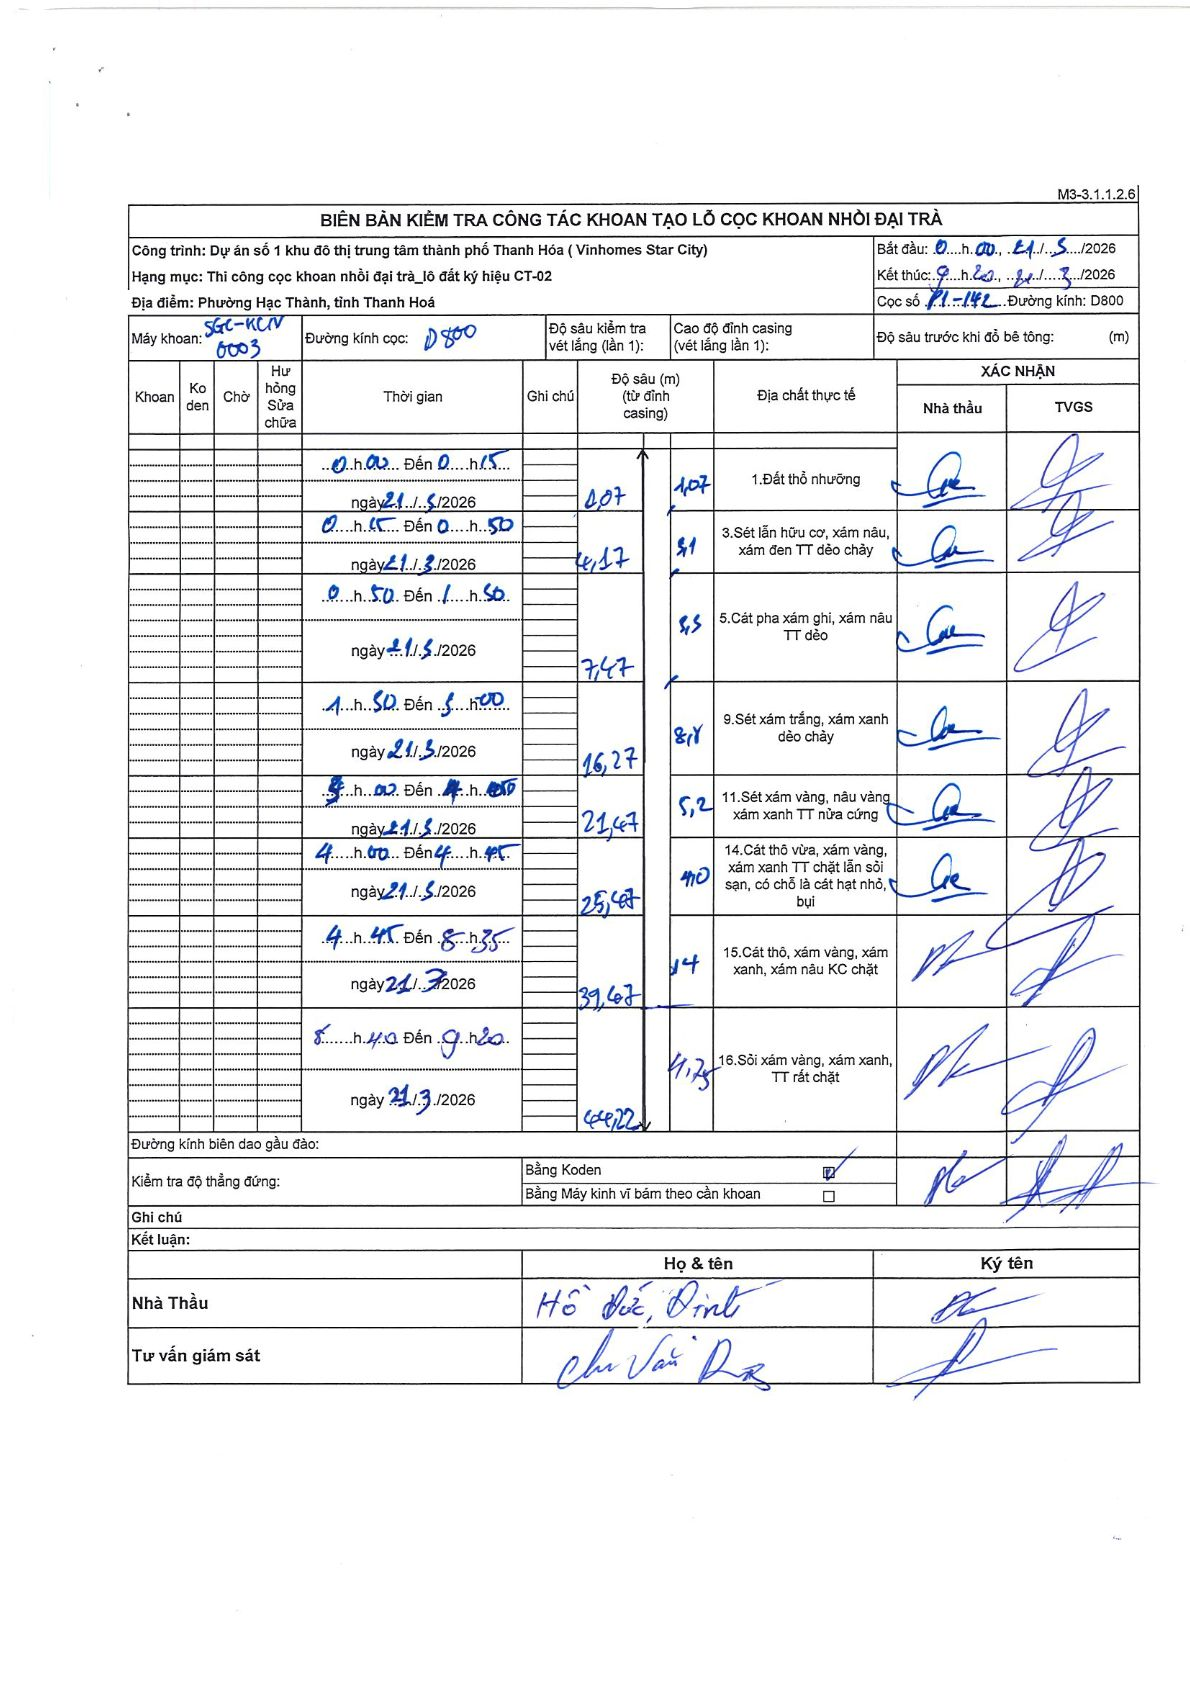 M3-3.1.1.2.6
BIÊN BẢN KIỂM TRA CÔNG TÁC KHOAN TẠO LỖ CỌC KHOAN NHỒI ĐẠI TRÀ
Công trình: Dự án số 1 khu đô thị trung tâm thành phố Thanh Hóa ( Vinhomes Star City)
Bắt đầu: 0....h.00., .21./..3..../2026
Hạng mục: Thi công cọc khoan nhồi đại trà_lô đất ký hiệu CT-02
Kết thúc: 9...h.20.., ..21../....3../2026
Địa điểm: Phường Hạc Thành, tỉnh Thanh Hoá
Cọc số P1-142...Đường kính: D800
Máy khoan: SGC-KCN 0003
Đường kính cọc: D800
Độ sâu kiểm tra vét lắng (lần 1):
Cao độ đỉnh casing (vét lắng lần 1):
Độ sâu trước khi đổ bê tông: (m)
Khoan
Ko den
Chờ
Hư hỏng Sửa chữa
Thời gian
Ghi chú
Độ sâu (m) (từ đỉnh casing)
Địa chất thực tế
XÁC NHẬN
Nhà thầu
TVGS
...0..h.00... Đến 0....h.15...
ngày 21../..3/2026
1,07
1,07
1.Đất thổ nhưỡng
0....h.15... Đến 0....h...50
ngày 21../.3./2026
4,17
3,1
3.Sét lẫn hữu cơ, xám nâu,
xám đen TT dẻo chảy
..0...h.50.. Đến .1....h.50..
ngày 21./.3./2026
7,47
3,3
5.Cát pha xám ghi, xám nâu
TT dẻo
..1...h.50.. Đến ..3...h.00..
ngày 21./.3./2026
16,27
8,8
9.Sét xám trắng, xám xanh
dẻo chảy
..3...h..00.. Đến ..4...h..00
ngày 21./.3./2026
21,47
5,2
11.Sét xám vàng, nâu vàng
xám xanh TT nửa cứng
4.....h.00... Đến 4....h..45
ngày 21../.3./2026
25,47
4,0
14.Cát thô vừa, xám vàng,
xám xanh TT chặt lẫn sỏi
sạn, có chỗ là cát hạt nhỏ,
bụi
..4...h..45. Đến .8...h.35...
ngày 21./..3/2026
39,47
14
15.Cát thô, xám vàng, xám
xanh, xám nâu KC chặt
8.......h.40 Đến ..9..h20..
ngày 21./.3../2026
44,22
4,75
16.Sỏi xám vàng, xám xanh,
TT rất chặt
Đường kính biên dao gầu đào:
Kiểm tra độ thẳng đứng:
Bằng Koden ☑
Bằng Máy kinh vĩ bám theo cần khoan ☐
Ghi chú
Kết luận:
Họ & tên
Ký tên
Nhà Thầu
Hồ Đức Định
Tư vấn giám sát
Chu Văn